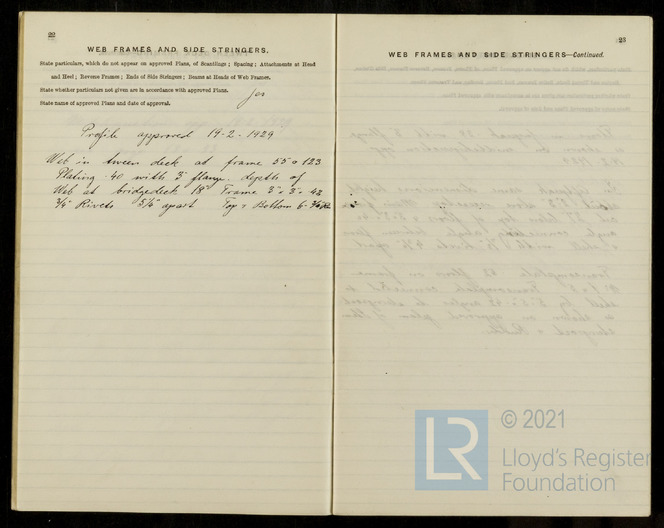 22
WEB FRAMES AND SIDE STRINGERS.
State particulars, which do not appear on approved Plans, of Scantlings ; Spacing ; Attachments at Head
and Heel ; Reverse Frames ; Ends of Side Stringers ; Beams at Heads of Web Frames.
State whether particulars not given are in accordance with approved Plans.
Yes
State name of approved Plans and date of approval.
Profile approved 19-2-1929
Web in tween deck at frame 55 & 123
Plating .40 with 3" flange. depth of
Web at bridgedeck 18" Frame 3" x 3" x .42
3/4" Rivets 5 1/4" apart Top & Bottom 6-
23
WEB FRAMES AND SIDE STRINGERS—Continued.
LR
© 2021
Lloyd's Register
Foundation